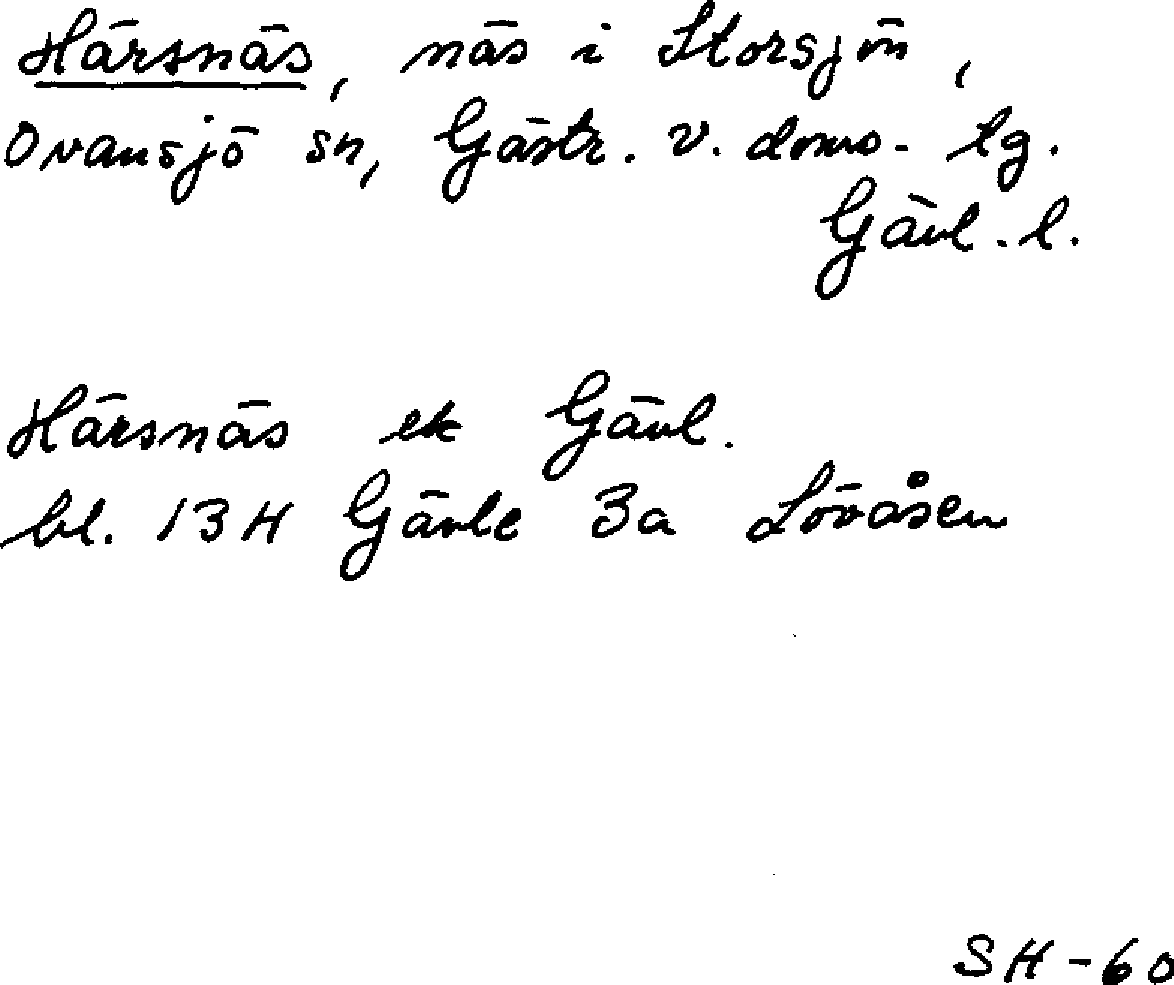 Härsnäs, näs i Storsjön,
Ovansjö sn, Gästr. v. doms. lg.
Gävl. l.
Härsnäs ek Gävl.
bl. 13H Gävle 3a Lövåsen
SH-60